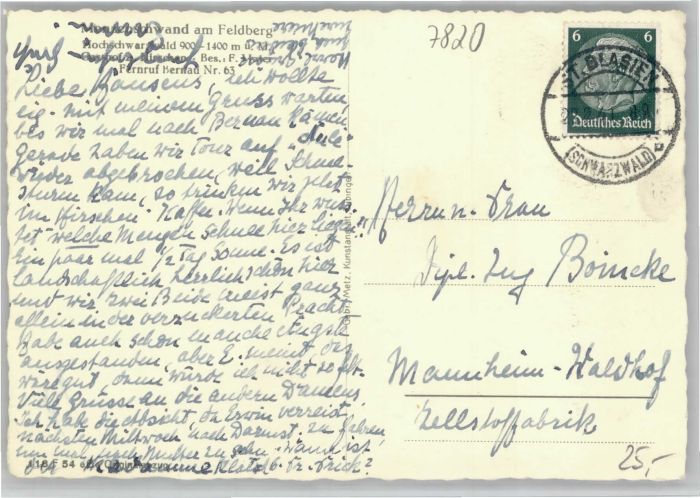 Menzenschwand am Feldberg
Hochschwarzwald 900-1400 m ü. M.
Bes.: F.
Fernruf Bernau Nr. 63
7820
6 6
Deutsches Reich
ST. BLASIEN
(SCHWARZWALD)
Liebe ich wollte
eig. mit meinem Gruss warten
bis wir mal nach Bernau kämen
Gerade haben wir Tour auf
wieder abgebrochen, weil Schnee
sturm kam, so trinken wir jetzt
im Hirschen Kaffee. Wenn Ihr wüs-
tet welche Mengen Schnee hier liegen
Ein paar mal ½ Tag Sonne. Es ist
landschaftlich herrlich schön hier
und wir zwei Beide meist ganz
allein in der verzuckerten Pracht
habe auch schon manche Ängste
ausgestanden, aber E. meint, das
wäre gut, dann würde ich nicht so
Viele Grüsse an die andern Damens
Ich habe die Absicht, da Erwin verreist,
nächsten Mittwoch nach Darmst. zu fahren
um mal nach Mutter zu sehn. Wann ist
der b. Fr. Frick?
Herrn u. Frau
Dipl. Ing Boincke
Mannheim-Waldhof
Zellstoffabrik
25,-